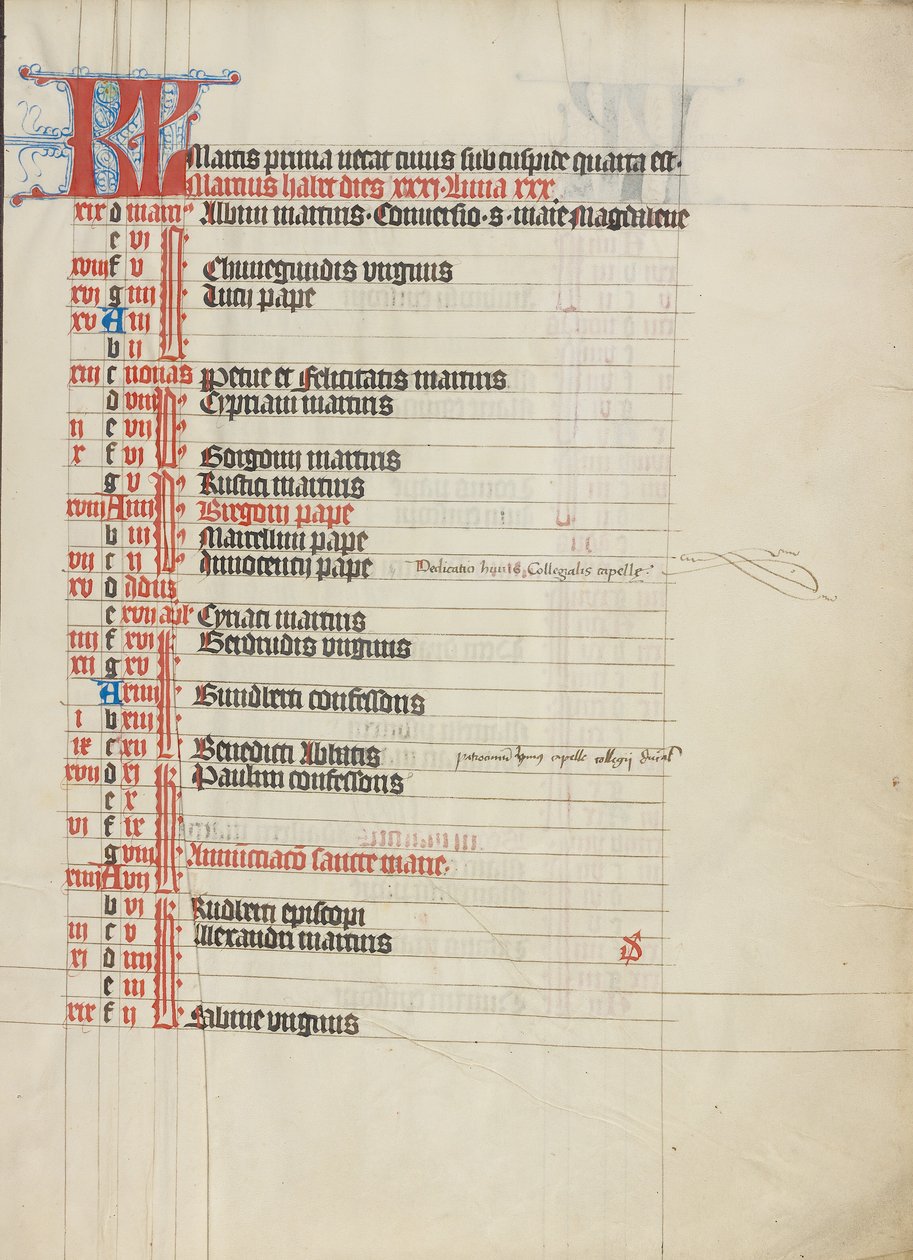 KL Martis prima necat cuius sub cuspide quarta est.
Martius habet dies xxxi. Luna xxx.
xix d marcii Albini martiris. Conuersio. s. marie Magdalene
e vi
xviii f v Chunegundis virginis
xvi g iiii Lucii pape
xv A iii
b ii
xiii c nonas Perpetue et Felicitatis martiris
d viii Cypriani martiris
ii e vii
x f vi Gorgonii martiris
g v Rustici martiris
xviii A iiii Gregorii pape
b iii Marcellini pape
vii c ii Innocencii pape Dedicatio huius Collegialis capelle:
xv d Idus
e xvii apl' Cyriaci martiris
iiii f xvi Gerdrudis virginis
xii g xv
A xiiii Gundberti confessoris
i b xiii
ix c xii Benedicti Abbatis patrocinium capelle collegii
xvii d xi Paulini confessoris
e x
vi f ix
g viii Annunciacō sancte marie.
xiiii A vii
b vi Rudberti episcopi
iii c v Alexandri martiris
xi d iiii
e iii
xix f ii Sabine virginis